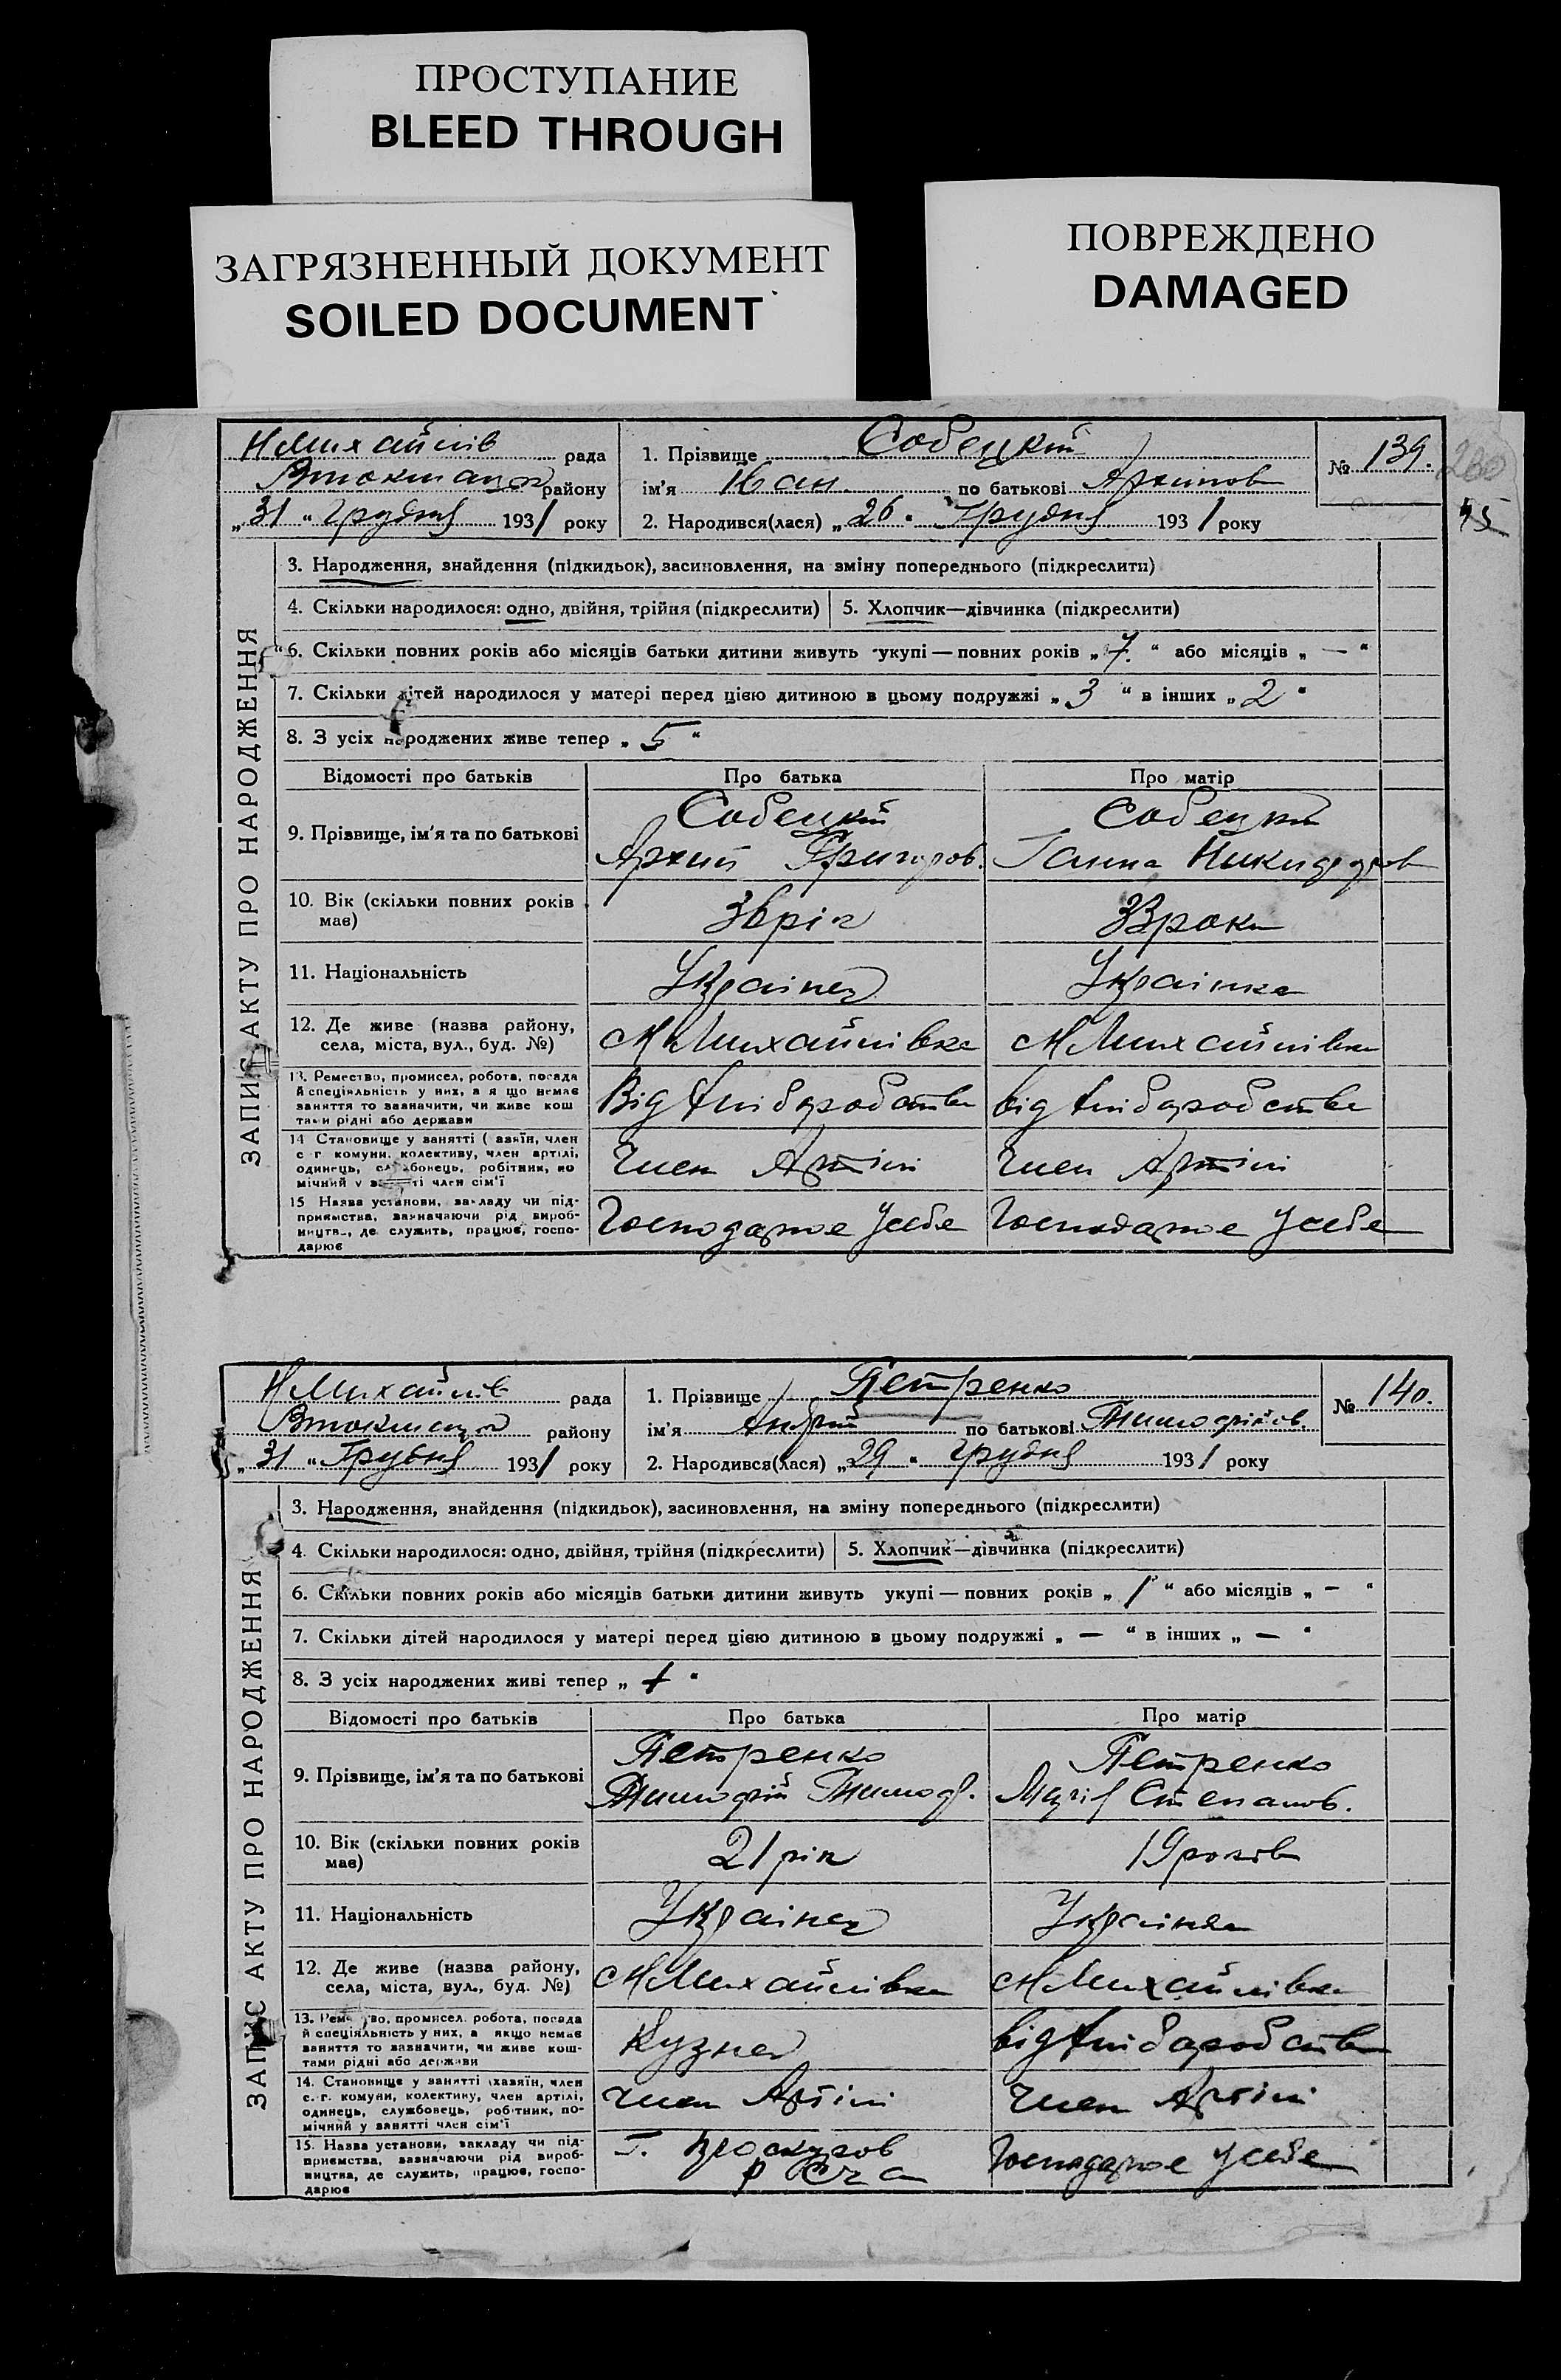 ПРОСТУПАНИЕ
BLEED THROUGH
ЗАГРЯЗНЕННЫЙ ДОКУМЕНТ
SOILED DOCUMENT
ПОВРЕЖДЕНО
DAMAGED
НМихайлів рада
району
„31 “ Грудня 1931 року
1. Прізвище Собецкій
ім'я Іван по батькові Архипов
2. Народився(лася) „26 “ Грудня 1931 року
№ 139.
260
75
ЗАПИС АКТУ ПРО НАРОДЖЕННЯ
3. Народження, знайдення (підкидьок), засиновлення, на зміну попереднього (підкреслити)
4. Скільки народилося: одно, двійня, трійня (підкреслити) 5. Хлопчик—дівчинка (підкреслити)
6. Скільки повних років або місяців батьки дитини живуть укупі — повних років „ 7. “ або місяців „ — “
7. Скільки дітей народилося у матері перед цією дитиною в цьому подружжі „ 3 “ в інших „ 2 “
8. З усіх народжених живе тепер „ 5 “
Відомості про батьків Про батька Про матір
9. Прізвище, ім'я та по батькові
Собецкій Собецкій
Архип Григоров. Ганна Никифоров
10. Вік (скільки повних років
має)
36 рік 33 роки
11. Національність Українец Українка
12. Де живе (назва району,
села, міста, вул., буд. №)
с НМихайлівка с НМихайлівка
13. Ремество, промисел, робота, посада
й спеціяльність у них, а я що немає
заняття то зазначити, чи живе кош
тами рідні або держави
Від хлібаробства від хлібаробства
14 Становище у занятті ( азяїн, член
с г комуни, колективу, член артілі,
одинець, службовець, робітник, по
мічний у занятті член сім'ї
Член Артілі Член Артілі
15 Назва установи, закладу чи під-
приємства, зазначаючи рід вироб-
ництва, де служить, працює, госпо-
дарює
Господарює у себе Господарює у себе
НМихайлів рада
району
„ 31 “ Грудня 1931 року
1. Прізвище Петренко
ім'я Андрій по батькові Тимофійов.
2. Народився(лася) „29 “ Грудня 1931 року
№ 140.
ЗАПИС АКТУ ПРО НАРОДЖЕННЯ
3. Народження, знайдення (підкидьок), засиновлення, на зміну попереднього (підкреслити)
4. Скільки народилося: одно, двійня, трійня (підкреслити) 5. Хлопчик—дівчинка (підкреслити)
6. Скільки повних років або місяців батьки дитини живуть укупі — повних років „ 1 “ або місяців „ — “
7. Скільки дітей народилося у матері перед цією дитиною в цьому подружжі „ — “ в інших „ — “
8. З усіх народжених живі тепер „ 1 “
Відомості про батьків Про батька Про матір
9. Прізвище, ім'я та по батькові
Петренко Петренко
Тимофій Тимоф. Марія Степанов.
10. Вік (скільки повних років
має)
21 рік 19 років
11. Національність Українец Українка
12. Де живе (назва району,
села, міста, вул., буд. №)
с НМихайлівка с НМихайлівка
13. Ремество, промисел, робота, посада
й спеціяльність у них, а якщо немає
заняття то зазначити, чи живе кош-
тами рідні або держави
Кузнец від хлібаробства
14. Становище у занятті (хазяїн, член
с.-г. комуни, колективу, член артілі,
одинець, службовець, робітник, по-
мічний у занятті член сім'ї
Член Артілі Член Артілі
15. Назва установи, закладу чи під-
приємства, зазначаючи рід вироб-
ництва, де служить, працює, госпо-
дарює
Господарює у себе